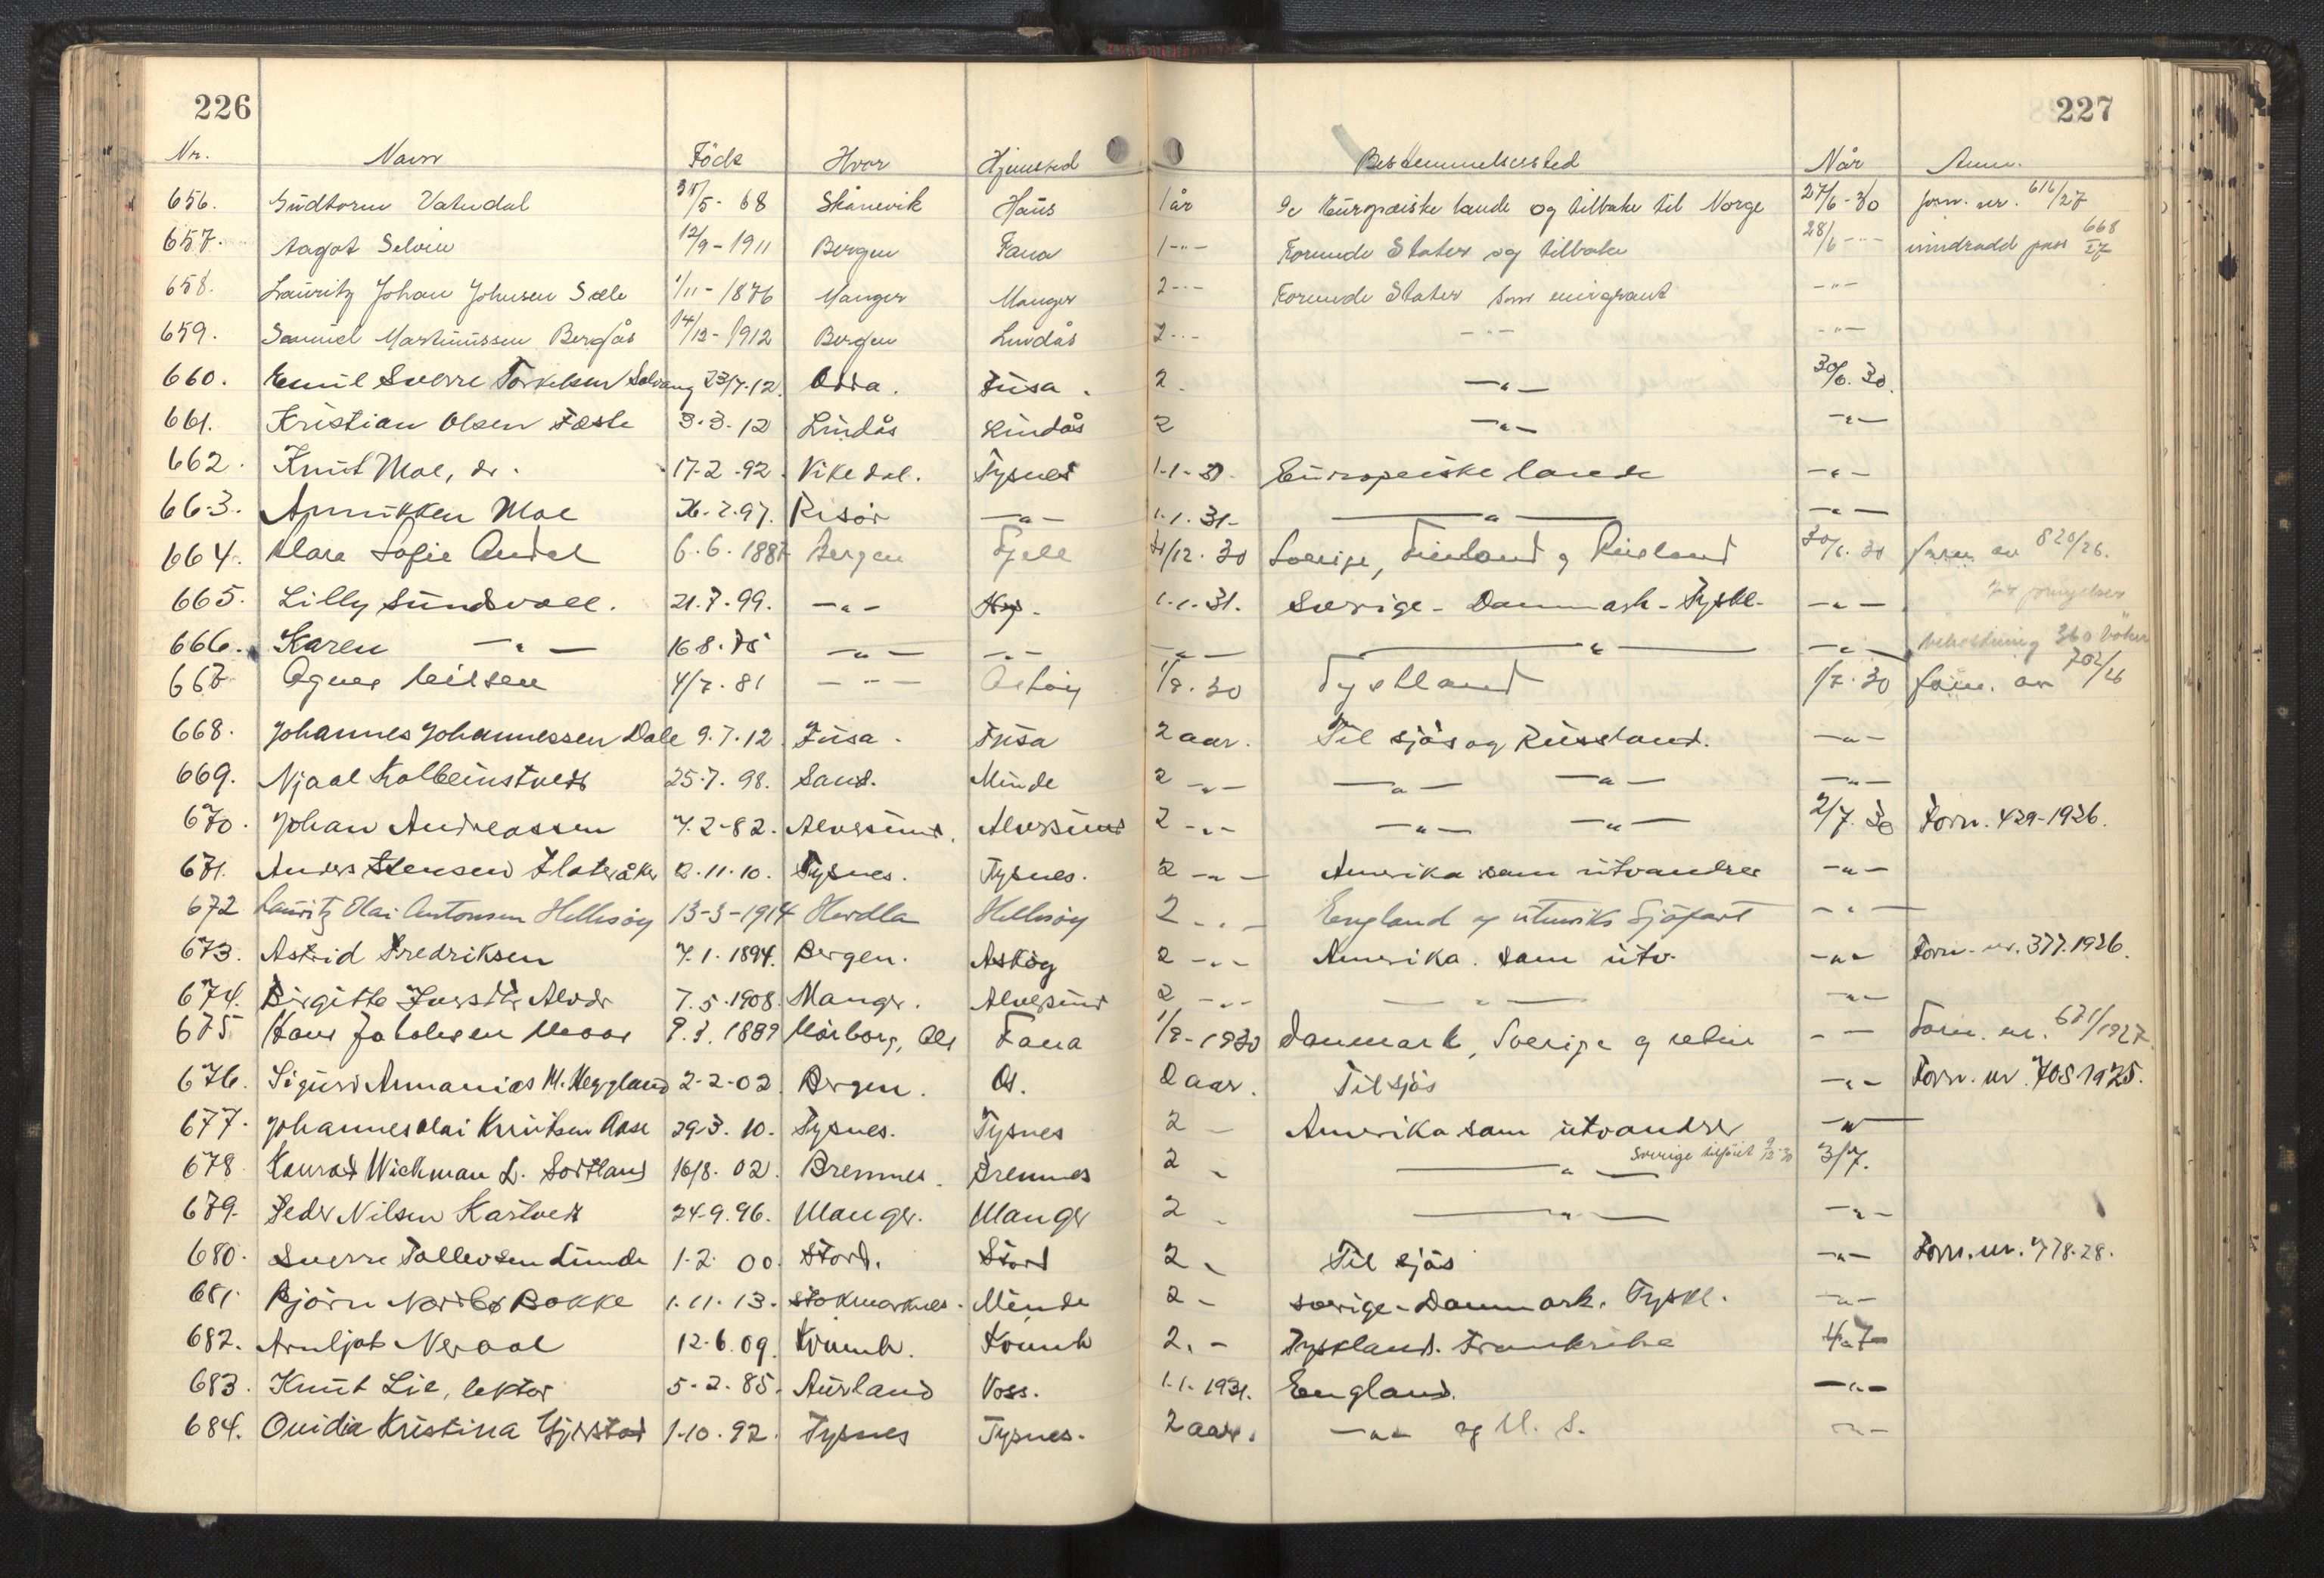 226 227
Nr. Navn Född Hvor Hjemsted Bestemmelsessted Når Anm.
656. Gudtorm Vatndal 31/5-68 Skånevik Haus 1 år De Europæiske lande og tilbake til Norge 27/6-30 forn. nr. 616/27
657. Aagot Selvin 12/9-1911 Bergen Fana 1-"- Forenede Stater og tilbake 28/6-"- inndradd pass 668/27
658. Lauritz Johan Johnsen Sæle 1/11-1876 Manger Manger 2-"- Forenede Stater som emigrant -"-
659. Samuel Martinussen Bergfås 14/12-1912 Bergen Lindås 2-"- -"- -"-
660. Emil Sverre Torkelsen Solvang 23/7-12. Odda. Fusa. 2. -"- 30/6.30.
661. Kristian Olsen Fæste 3.3.12 Lindås Lindås 2 -"- -"-
662. Knut Moe, dr. 17-2-92. Vikedal. Tysnes 1-1-31. Europeiske lande -"-
663. Annikken Moe 26.2.97. Risör -"- 1.1.31- -"- -"-
664. Klara Sofie Andal 6.6.1887 Bergen Fjell 31/12.30 Sverige, Finland og Russland 30/6.30 forn. av 820/26.
665. Lilly Sundvoll. 21.7.99. -"- 1.1.31. Sverige-Danmark-Tyskl. -"-
666. Karen -"- 16 8.75 -"- -"- -"- -"- -"-
667 Agnes Nilsen 4/7.81 -"- Askøy 1/9.30 Tyskland 1/7.30 forn. av 702/26
668. Johannes Johannessen Dale 9.7.12. Fusa. Fusa 2 aar. Til sjøs og Russland. -"-
669. Njaal Kolbeinstveit 25.7.98. Sand. Minde 2 -"- -"- -"- -"-
670. Johan Andreassen 7.2-82. Alversund. Alversund 2 -"- -"- -"- 2/7.30 Forn. 429-1926.
671. Anders Stensen Flateråker 2.11.10. Tysnes. Tysnes. 2 -"- Amerika som utvandrer -"-
672 Lauritz Olai Antonsen Hellesøy 13-3-1914 Herdla Hellesøy 2 -"- England og utenriks Sjøfart -"-
673. Astrid Fredriksen 7.1.1894. Bergen. Askøy 2 -"- Amerika. som utv. -"- Forn. nr. 377.1926.
674. Birgitte Alver 7.5.1908. Manger. Alversund 2 -"- -"- -"-
675 Hans Jakobsen Moos 9.3.1889 Nörborg, Als Fana 1/9-1930 Danmark, Sverige og retur - - Forn. nr. 671/1927.
676. Sigurd Annanias M. Heggland 2-2-02. Bergen. Os. 2 aar. Til sjøs -"- Forn. nr. 708 1925.
677. Johannes Olai Knutsen Aase 29-3.10. Tysnes. Tysnes 2 - Amerika som utvandrer -"-
678. Konrad Wichman L. Sortland 16/8.02. Bremnes. Bremnes 2 - -"- Sverige tilføiet 9/12-30 3/7.
679. Peder Nilsen Kartveit 24-9.96. Manger. Manger 2 - -"- -"-
680. Sverre Tollevsen Lunde 1.2.00. Stord. Stord 2 - Til sjøs -"- Forn. nr. 778-28.
681. Bjørn Nordbø Bakke 1.11.13. Stokmarknes. Minde 2 - Sverige-Danmark. Tyskl. -"-
682. Arnljot Neraal 12.6.09. Kvinnh. Kvinnh 2. - Tyskland. Frankrike 4-7-
683. Knut Lie, lektor 5-2.85. Aurland Voss. 1.1.1931. England. -"-
684. Ovidia Kristina Gjerstad 1-10.92. Tysnes Tysnes. 2 aar. -"- og U.S. -"-